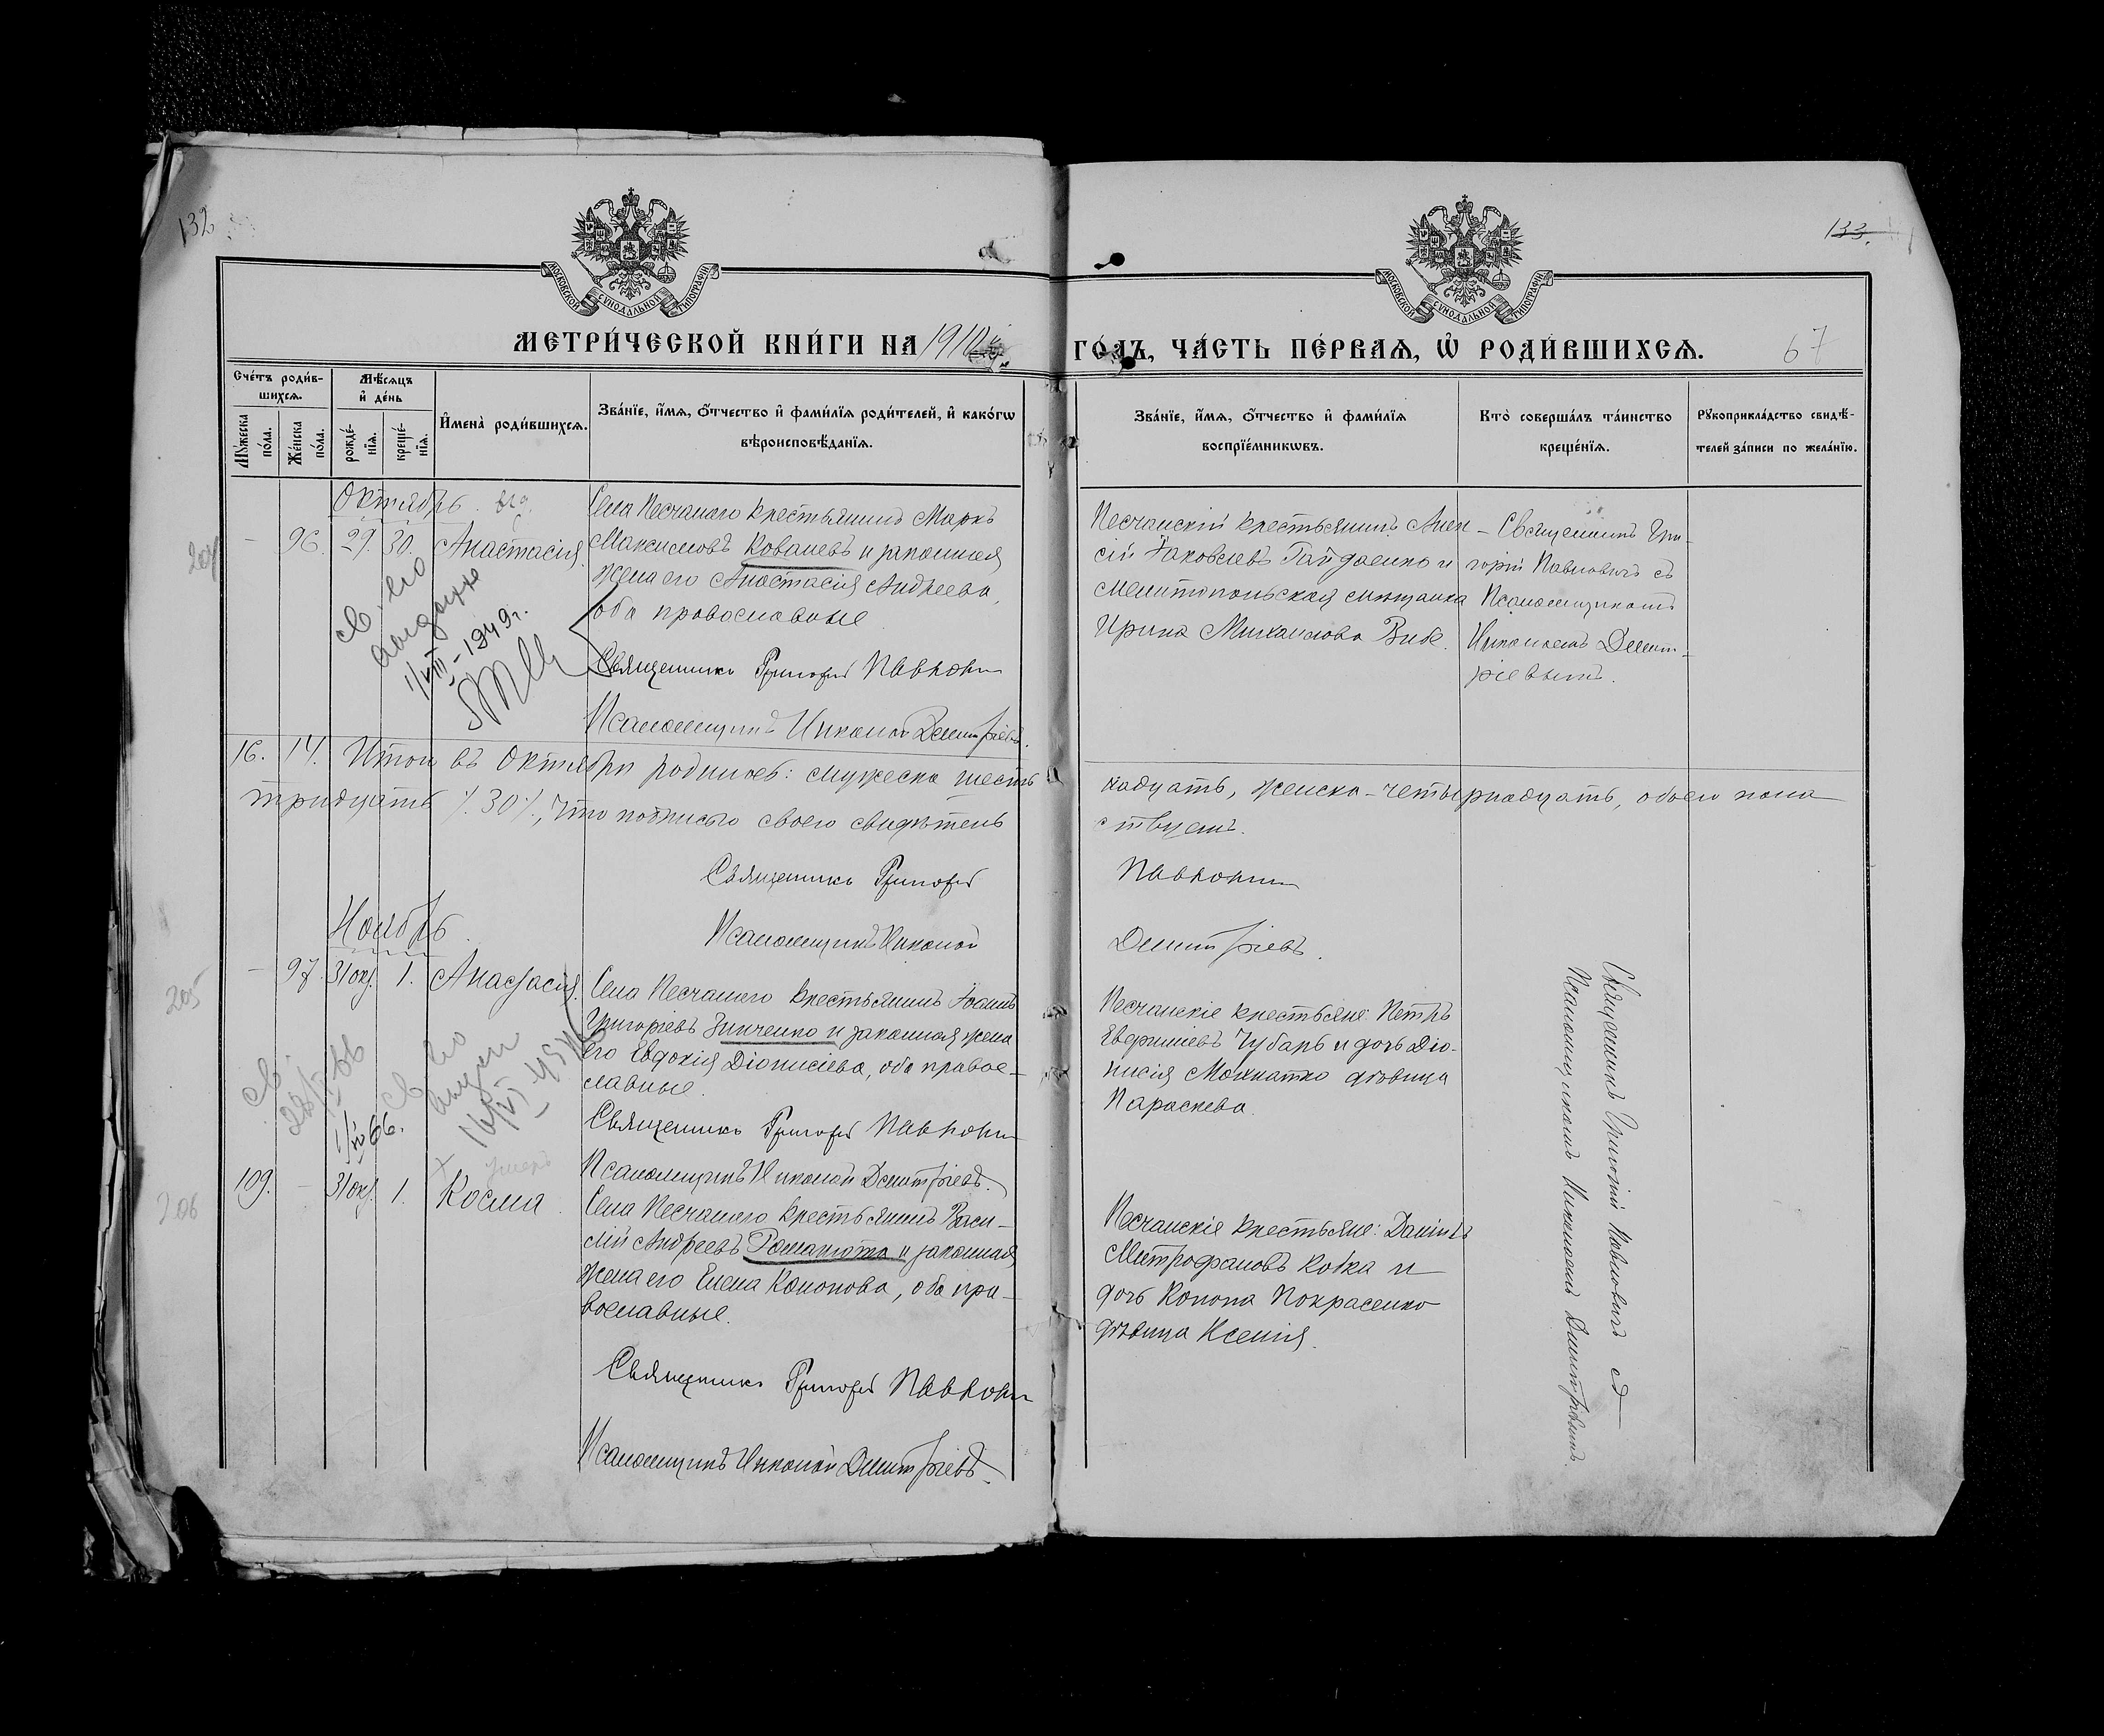 132
133.
67
МОСКОВСКОЙ СУНОДАЛЬНОЙ ТИПОГРАФІИ
МОСКОВСКОЙ СУНОДАЛЬНОЙ ТИПОГРАФІИ
МЕТРИ́ЧЕСКОЙ КНИ́ГИ НА 191
ГО́ДЪ, ЧА́СТЬ ПЕ́РВАѦ, Ѡ҆ РОДИ́ВШИХСѦ.
Сче́тъ роди́в-
шихсѧ.
Мꙋ́жеска
по́ла.
Же́нска
по́ла.
Мѣ́сѧцъ
и҆ де́нь
рожде́-
нїѧ.
креще́-
нїѧ.
И҆мена̀ роди́вшихсѧ.
Зва́нїе, и҆́мѧ, ѻ҆́тчество и҆ фами́лїѧ роди́телей, и҆ како́гѡ
вѣроисповѣ́данїѧ.
Зва́нїе, и҆́мѧ, ѻ҆́тчество и҆ фами́лїѧ
воспрїе́мникѡвъ.
Кто̀ соверша́лъ та́инство
креще́нїѧ.
Рꙋкоприкла́дство свидѣ́-
телей за́писи по жела́нїю.
Октябрь.
— 96. 29. 30. Анастасія.
Села Песчанаго крестьянинъ Маркъ
Максимовъ Ковалевъ и законная
жена его Анастасія Андреева,
оба православные
Священникъ Григорій Павлович
Псаломщикъ Николай Димитріевъ.
Песчанскій крестьянинъ Алек-
сій Іаковлевъ Гайдаенко и
мелитопольская мѣщанка
Ирина Михаилова Вивк.
Священникъ Гри-
горій Павловичъ съ
Псаломщикомъ
Николаемъ Димит-
ріевымъ.
св-во
выдано
1/VIII-1949г.
16. 14. Итого въ Октябрѣ родилось: мужеска шест
надцать, женска - четырнадцать, обоего пола
тридцать /.30/., что подписью своею свидѣтель
ствуемъ.
Священникъ Григорій
Павлович
Псаломщикъ Николай
Димитріевъ.
Ноябрь.
205
— 97. 31 окт. 1. Анастасія.
Села Песчанаго крестьянинъ Іоаннъ
Григоріевъ Зинченко и законная жена
его Евдокія Діонисіева, оба право-
славные.
Священникъ Григорій Павлович
Псаломщикъ Николай Димитріевъ.
Песчанскіе крестьяне: Петръ
Евфиміевъ Чубарь и дочь Діо-
нисія Мохнатко дѣвица
Параскева.
206
109. — 31 окт. 1. Косма
Села Песчанаго крестьянинъ Васи-
лій Андреевъ Романюта и законная
жена его Елена Кононова, оба пра-
вославные.
Священникъ Григорій Павлович
Псаломщикъ Николай Димитріевъ.
Песчанскіе крестьяне: Даніилъ
Митрофановъ Кобка и
дочь Конона Покрасенко
дѣвица Ксенія.
Священникъ Григорій Павловичъ съ
Псаломщикомъ Николаемъ Димитріевымъ.